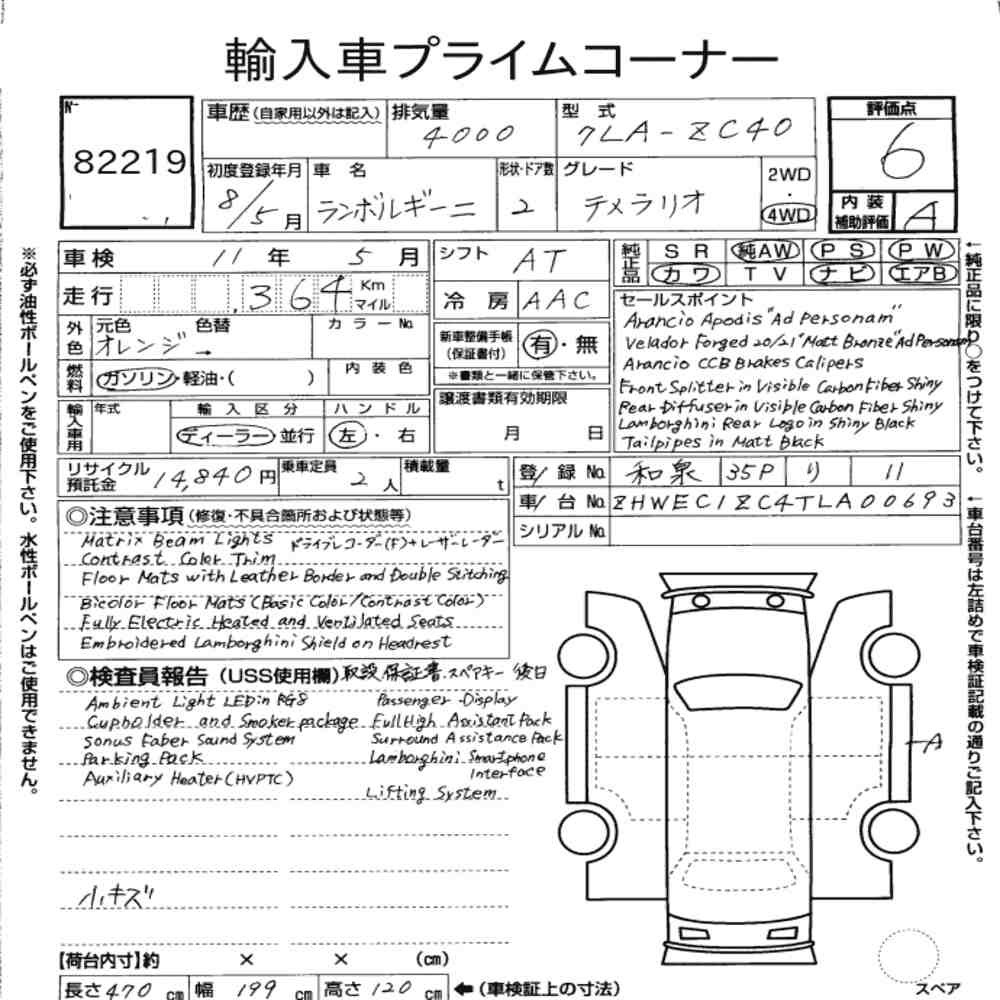 輸入車プライムコーナー
№
82219
車歴(自家用以外は記入)
排気量
4000
型 式
7LA-ZC40
評価点
6
初度登録年月
8/5月
車 名
ランボルギーニ
形状・ドア数
2
グレード
テメラリオ
2WD
・
4WD
内 装
補助評価
A
車検 11年 5月
シフト AT
純正品
SR 純AW PS PW
カワ TV ナビ エアB
走行 364 Km マイル
冷房 AAC
外色
元色 色替
オレンジ →
カラーNo.
新車整備手帳
(保証書付)
有・無
※書類と一緒に保管下さい。
燃料
ガソリン・軽油・( )
内装色
セールスポイント
Arancio Apodis "Ad Personam"
Velador Forged 20/21 "Matt Bronze "Ad Personam
Arancio CCB Brakes Calipers
Front Splitter in Visible Carbon Fiber Shiny
Rear Diffuser in Visible Carbon Fiber Shiny
Lamborghini Rear Logo in Shiny Black
Tailpipes in Matt Black
譲渡書類有効期限
月 日
輸入車用
年式
輸入区分
ディーラー・並行
ハンドル
左・右
リサイクル
預託金
14,840円
乗車定員
2人
積載量
t
登/録 No. 和泉 35P り 11
車/台 No. ZHWEC1ZC4TLA00693
シリアル No.
◎注意事項(修復・不具合箇所および状態等)
Matrix Beam Lights ドライブレコーダー(F)+レーザーレーダー
Contrast Color Trim
Floor Mats with Leather Border and Double Stitching
Bicolor Floor Mats (Basic Color/Contrast Color)
Fully Electric Heated and Ventilated Seats
Embroidered Lamborghini Shield on Headrest
◎検査員報告(USS使用欄)取説 保証書 スペアキー 後日
Ambient Light LED in RGB Passenger Display
Cupholder and Smoker package Full High Assistant Pack
Sonus Faber Sound System Surround Assistance Pack
Parking Pack Lamborghini Smartphone
Auxiliary Heater (HVPTC) Interface
Lifting System
小キズ
A
【荷台内寸】約 × × (cm)
長さ 470 cm 幅 199 cm 高さ 120 cm ←(車検証上の寸法)
スペア
※必ず油性ボールペンをご使用下さい。水性ボールペンはご使用できません。
←純正品に限り○をつけて下さい。
←車台番号は左詰めで車検証記載の通りご記入下さい。